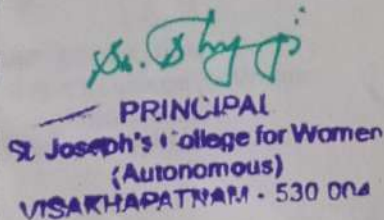 PRINCIPAL
St. Joseph's College for Women
(Autonomous)
VISAKHAPATNAM - 530 004